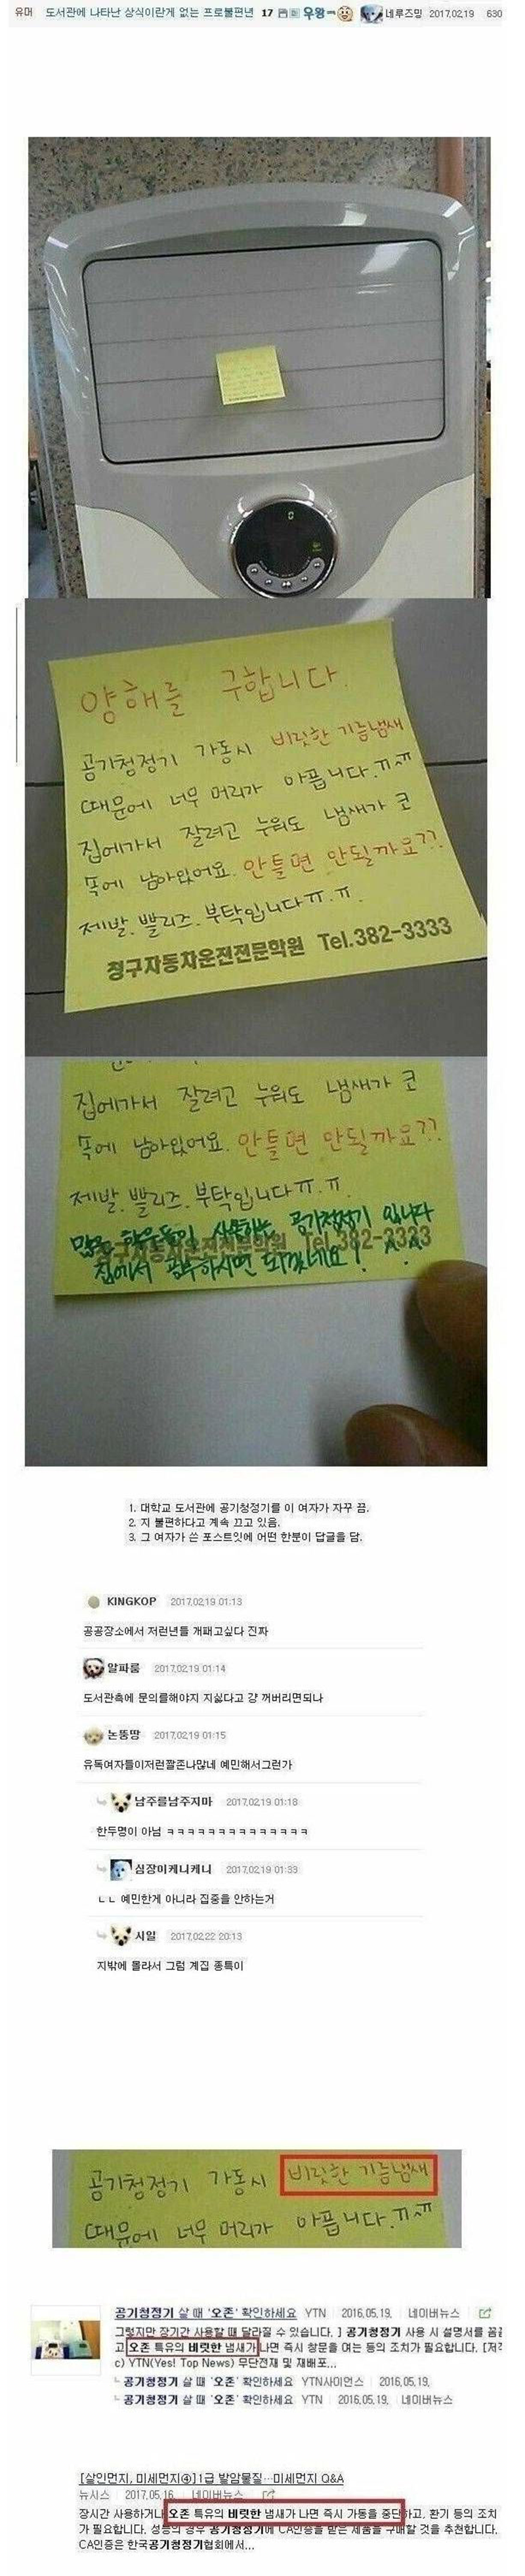 유머 도서관에 나타난 상식이란게 없는 프로불편년 17 우왕ㅋ 네루즈밍 2017.02.19 630
양해를 구합니다.
공기청정기 가동시 비릿한 기름냄새
때문에 너무 머리가 아픕니다.ㅠㅠ
집에가서 잘려고 누워도 냄새가 코
속에 남아있어요. 안틀면 안될까요??
제발.쁠리즈.부탁입니다ㅠ.ㅠ.
청구자동차운전전문학원 Tel.382-3333
집에가서 잘려고 누워도 냄새가 코
속에 남아있어요. 안틀면 안될까요??
제발.쁠리즈.부탁입니다ㅠ.ㅠ.
많은 학우들이 사용하는 공기청정기 입니다
청구자동차운전전문학원 Tel.382-3333
집에서 공부하시면 되겠네요! ^ ^
1. 대학교 도서관에 공기청정기를 이 여자가 자꾸 끔.
2. 지 불편하다고 계속 끄고 있음.
3. 그 여자가 쓴 포스트잇에 어떤 한분이 답글을 담.
KINGKOP 2017.02.19 01:13
공공장소에서 저런년들 개패고싶다 진짜
알파룸 2017.02.19 01:14
도서관측에 문의를해야지 지싫다고 걍 꺼버리면되나
논뚱땅 2017.02.19 01:15
유독여자들이저런짤존나많네 예민해서그런가
남주를남주지마 2017.02.19 01:18
한두명이 아님 ㅋㅋㅋㅋㅋㅋㅋㅋㅋㅋㅋㅋㅋㅋ
심장이케니케니 2017.02.19 01:33
ㄴㄴ 예민한게 아니라 집중을 안하는거
시일 2017.02.22 20:13
지밖에 몰라서 그럼 계집 종특이
공기청정기 가동시 비릿한 기름냄새
때문에 너무 머리가 아픕니다.ㅠㅠ
공기청정기 살 때 '오존' 확인하세요 YTN 2016.05.19. 네이버뉴스
그렇지만 장기간 사용할 때 달라질 수 있습니다. ] 공기청정기 사용 시 설명서를 꼼꼼
고 오존 특유의 비릿한 냄새가 나면 즉시 창문을 여는 등의 조치가 필요합니다. [저작
c) YTN(Yes! Top News) 무단전재 및 재배포...
공기청정기 살 때 '오존' 확인하세요 YTN사이언스 2016.05.19.
공기청정기 살 때 '오존' 확인하세요 YTN 2016.05.19. 네이버뉴스
[살인먼지, 미세먼지④]1급 발암물질…미세먼지 Q&A
뉴시스 2017.05.16. 네이버뉴스
장시간 사용하거나 오존 특유의 비릿한 냄새가 나면 즉시 가동을 중단하고, 환기 등의 조치
가 필요합니다. 성능의 경우 공기청정기에 CA인증을 받은 제품을 구매할 것을 추천합니다.
CA인증은 한국공기청정기협회에서...